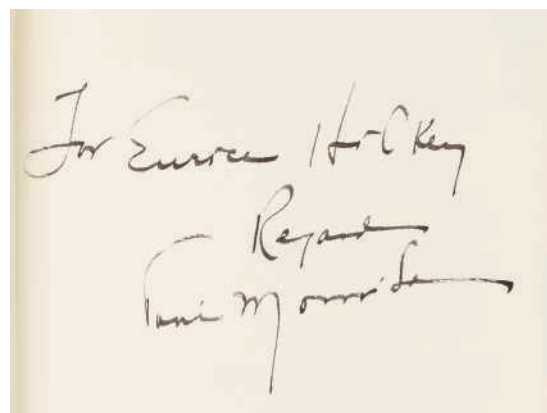 For Eunice Hickey
Regards
Toni Morrison